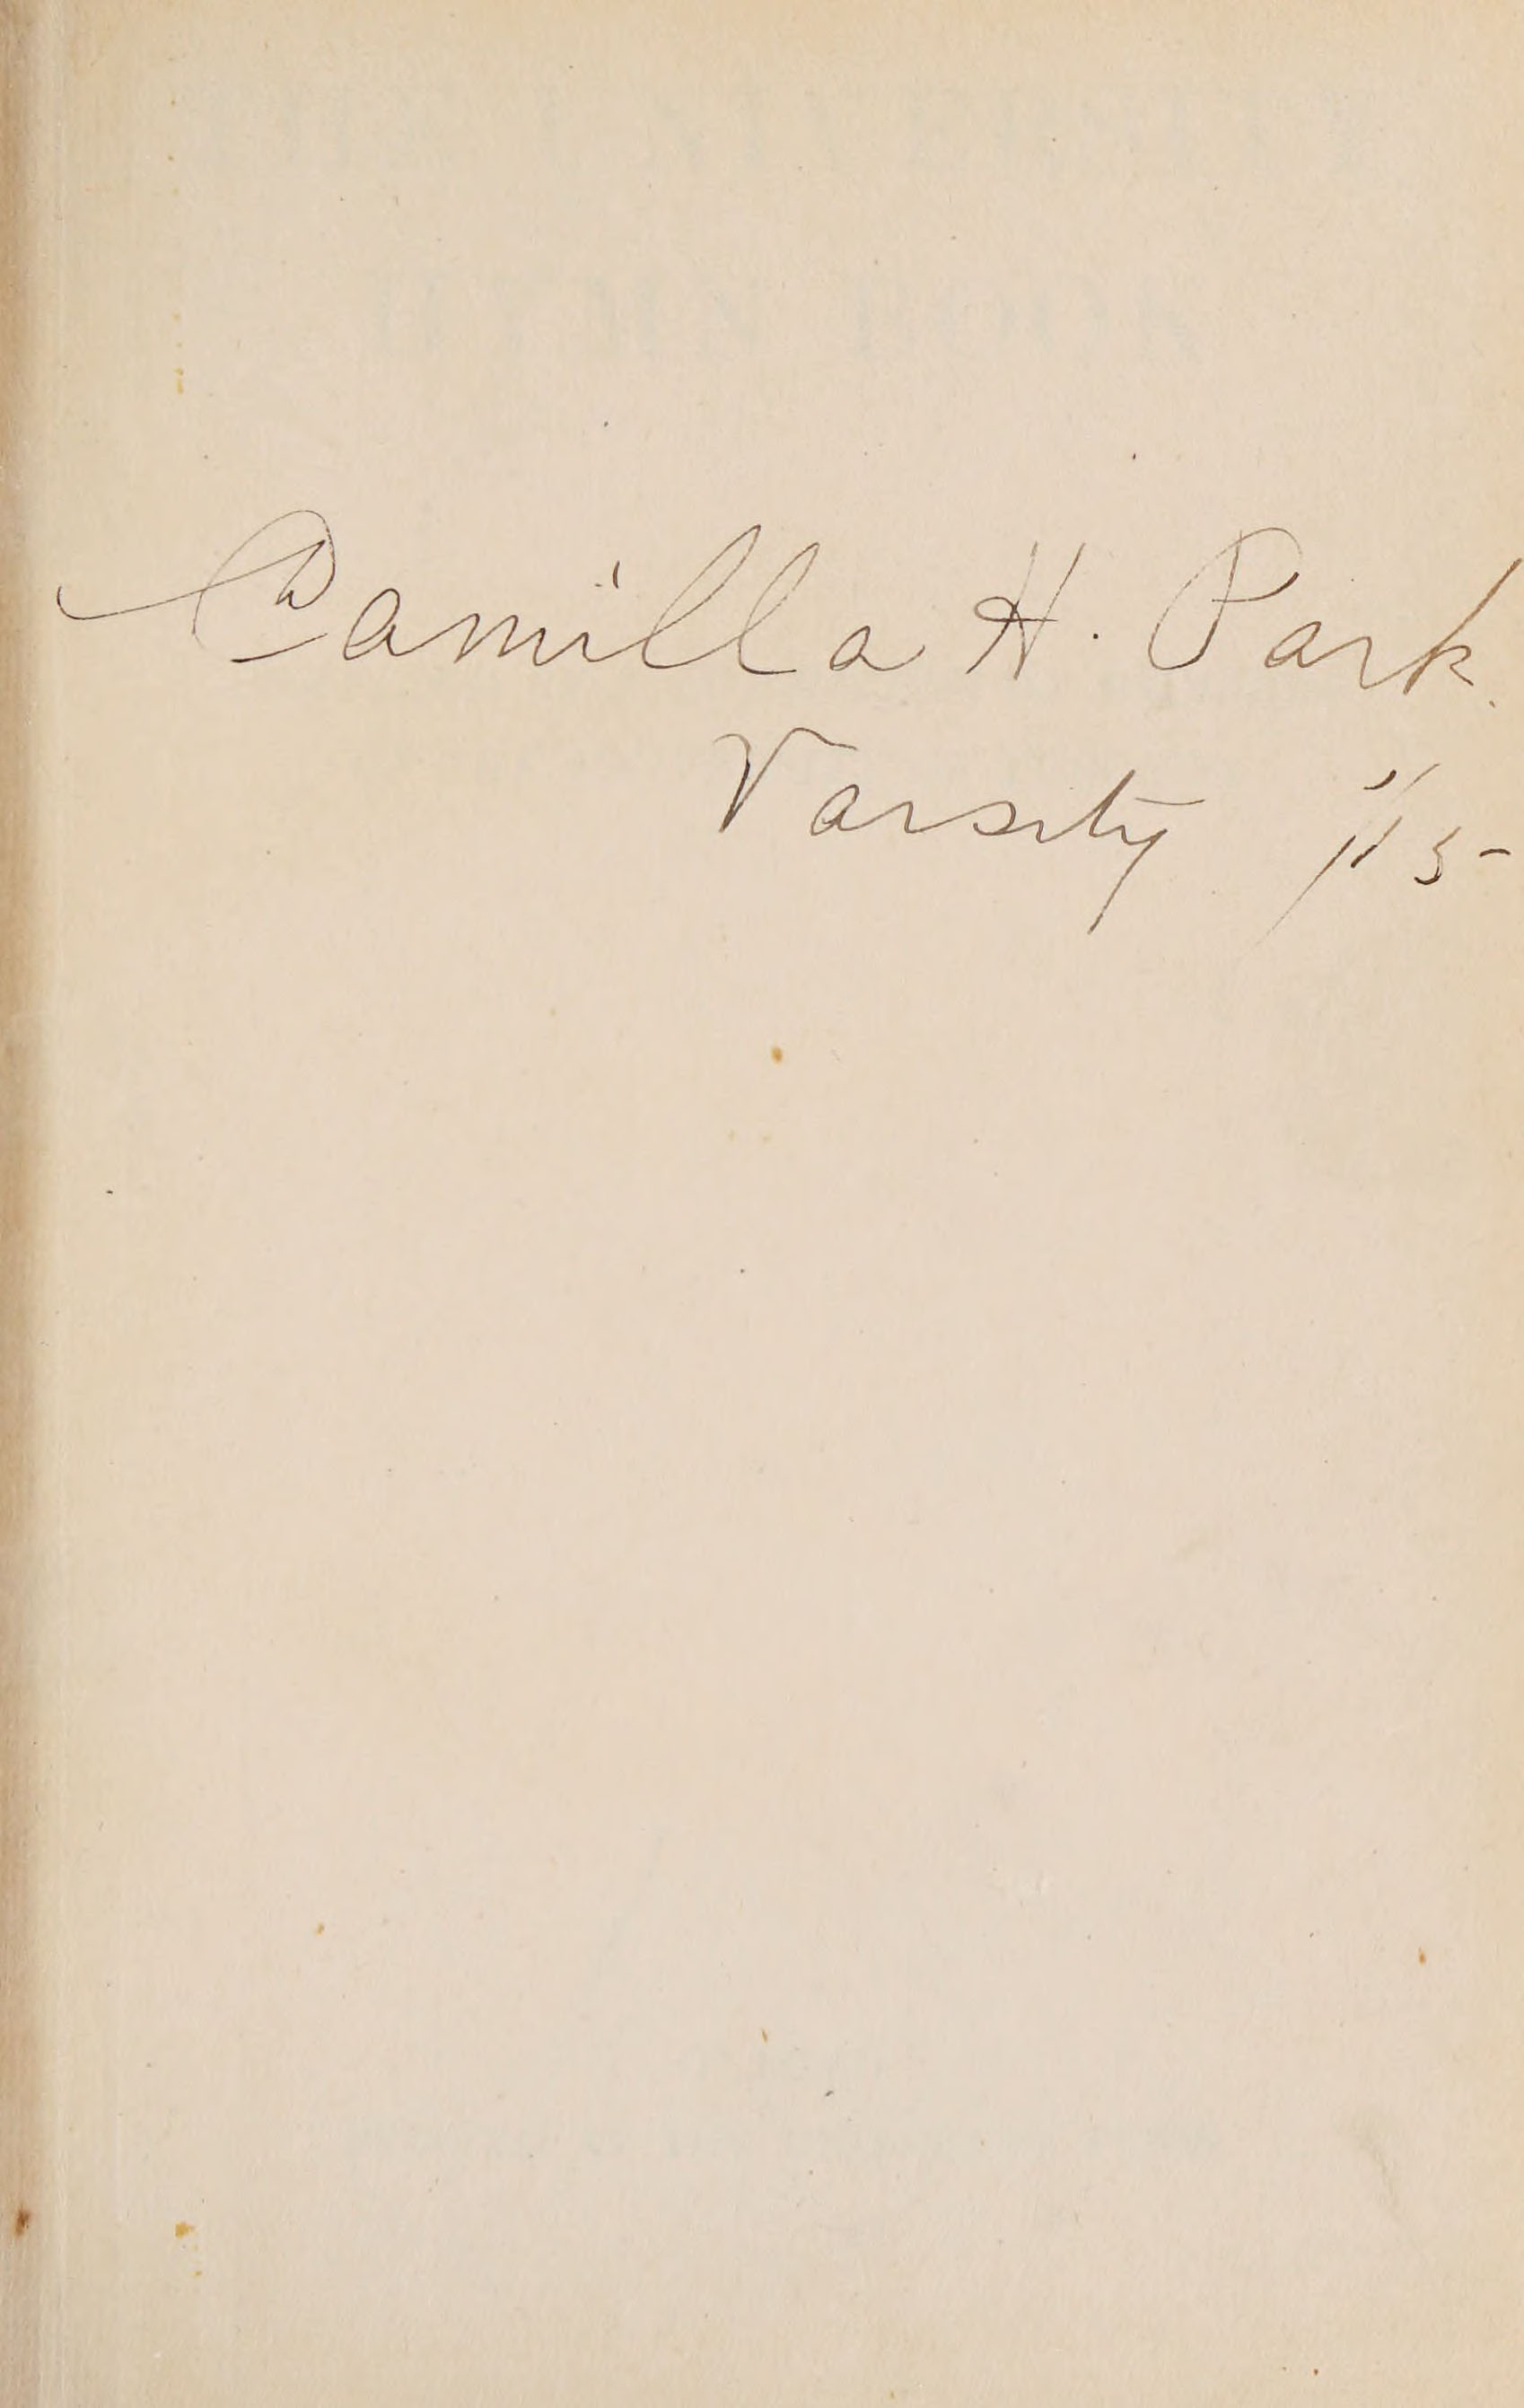 Camilla H. Park.
Varsity '15